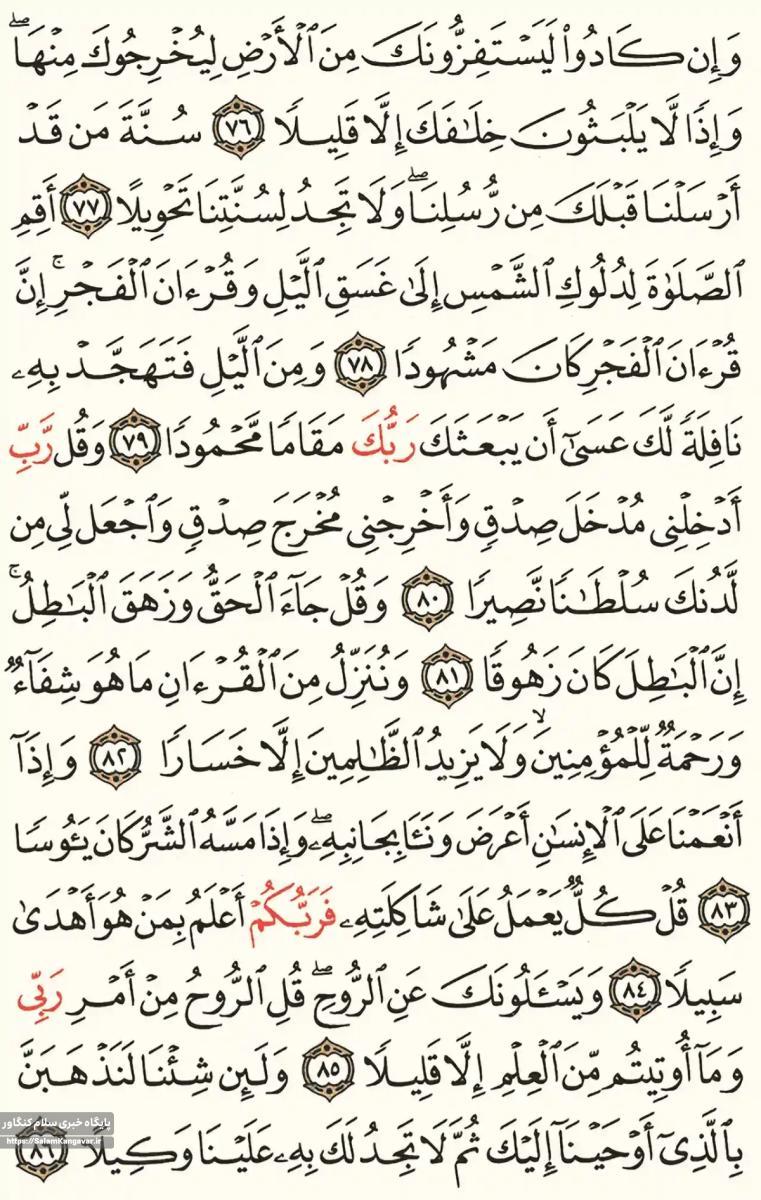 وَإِن كَادُوا۟ لَيَسْتَفِزُّونَكَ مِنَ ٱلْأَرْضِ لِيُخْرِجُوكَ مِنْهَا ۖ
وَإِذًا لَّا يَلْبَثُونَ خِلَـٰفَكَ إِلَّا قَلِيلًا ٧٦ سُنَّةَ مَن قَدْ
أَرْسَلْنَا قَبْلَكَ مِن رُّسُلِنَا ۖ وَلَا تَجِدُ لِسُنَّتِنَا تَحْوِيلًا ٧٧ أَقِمِ
ٱلصَّلَوٰةَ لِدُلُوكِ ٱلشَّمْسِ إِلَىٰ غَسَقِ ٱلَّيْلِ وَقُرْءَانَ ٱلْفَجْرِ ۚ إِنَّ
قُرْءَانَ ٱلْفَجْرِ كَانَ مَشْهُودًا ٧٨ وَمِنَ ٱلَّيْلِ فَتَهَجَّدْ بِهِۦ
نَافِلَةً لَّكَ عَسَىٰٓ أَن يَبْعَثَكَ رَبُّكَ مَقَامًا مَّحْمُودًا ٧٩ وَقُل رَّبِّ
أَدْخِلْنِى مُدْخَلَ صِدْقٍ وَأَخْرِجْنِى مُخْرَجَ صِدْقٍ وَٱجْعَل لِّى مِن
لَّدُنكَ سُلْطَـٰنًا نَّصِيرًا ٨٠ وَقُلْ جَآءَ ٱلْحَقُّ وَزَهَقَ ٱلْبَـٰطِلُ ۚ
إِنَّ ٱلْبَـٰطِلَ كَانَ زَهُوقًا ٨١ وَنُنَزِّلُ مِنَ ٱلْقُرْءَانِ مَا هُوَ شِفَآءٌ
وَرَحْمَةٌ لِّلْمُؤْمِنِينَ ۙ وَلَا يَزِيدُ ٱلظَّـٰلِمِينَ إِلَّا خَسَارًا ٨٢ وَإِذَآ
أَنْعَمْنَا عَلَى ٱلْإِنسَـٰنِ أَعْرَضَ وَنَـَٔا بِجَانِبِهِۦ ۖ وَإِذَا مَسَّهُ ٱلشَّرُّ كَانَ يَـُٔوسًا
٨٣ قُلْ كُلٌّ يَعْمَلُ عَلَىٰ شَاكِلَتِهِۦ فَرَبُّكُمْ أَعْلَمُ بِمَنْ هُوَ أَهْدَىٰ
سَبِيلًا ٨٤ وَيَسْـَٔلُونَكَ عَنِ ٱلرُّوحِ ۖ قُلِ ٱلرُّوحُ مِنْ أَمْرِ رَبِّى
وَمَآ أُوتِيتُم مِّنَ ٱلْعِلْمِ إِلَّا قَلِيلًا ٨٥ وَلَئِن شِئْنَا لَنَذْهَبَنَّ
بِٱلَّذِىٓ أَوْحَيْنَآ إِلَيْكَ ثُمَّ لَا تَجِدُ لَكَ بِهِۦ عَلَيْنَا وَكِيلًا ٨٦
پایگاه خبری سلام کنگاور
https://SalamKangavar.ir